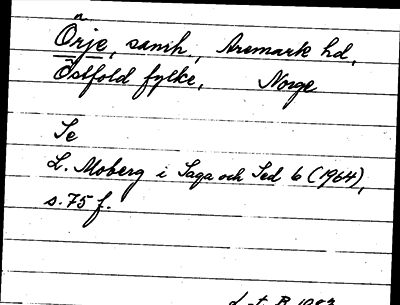 Örje, samh, Aremark hd,
Östfold fylke, Norge
Se
L. Moberg i Saga och Sed 6 (1964),
s. 75 f.